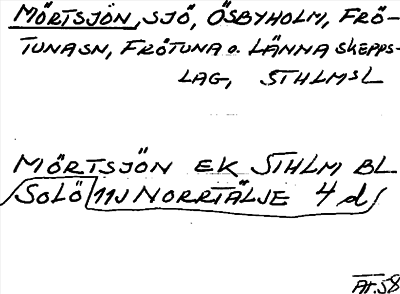 MÖRTSJÖN, SJÖ, ÖSBYHOLM, FRÖ-
TUNA SN, FRÖTUNA o. LÄNNA SKEPPS-
LAG, STHLMSL
MÖRTSJÖN EK STHLM BL
SOLÖ 11J NORRTÄLJE 4 d
AT.58